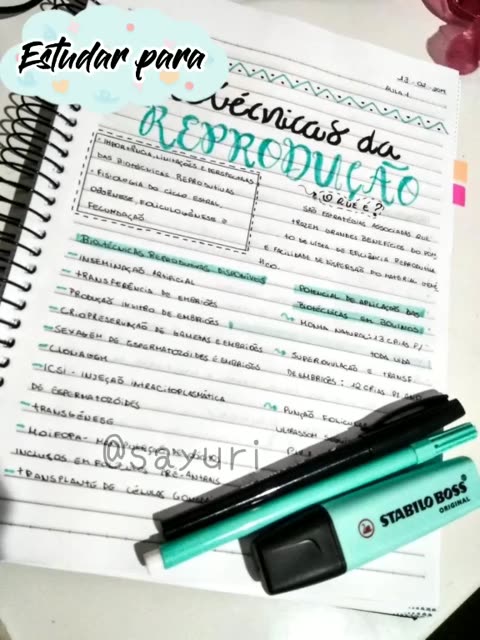 Estudar para
AULA 1
técnicas da
REPRODUÇÃO
• IMPORTÂNCIA, LIMITAÇÕES E
DAS BIOTÉCNICAS REPRODUTIVAS
• FISIOLOGIA DO CICLO ESTRAL,
FECUNDAÇÃO
O QUE É?
SÃO ESTRATÉGIAS ASSOCIADAS QUE
TRAZEM GRANDES BENEFÍCIOS DO
E FACILIDADE DE DISPERSÃO DO MATERIAL GENÉ
TICO.
BIOTÉCNICAS REPRODUTIVAS DISPONÍVEIS
- INSEMINAÇÃO ARTIFICIAL
- TRANSFERÊNCIA DE EMBRIÕES
- PRODUÇÃO IN VITRO DE EMBRIÕES
- CRIOPRESERVAÇÃO DE GAMETAS E EMBRIÕES
- SEXAGEM DE ESPERMATOZÓIDES E EMBRIÕES
- CLONAGEM
- ICSI - INJEÇÃO INTRACITOPLASMÁTICA
DE ESPERMATOZÓIDES
- TRANSGÊNESE
- MOIFOPA-
INCLUSOS EM PRÉ-ANTRAIS
- TRANSPLANTE DE CÉLULAS
POTENCIAL DE APLICAÇÃO DAS
BIOTÉCNICAS EM BOVINOS
MONTA NATURAL: 13 CRIAS P/
TODA VIDA
SUPEROVULAÇÃO E TRANSF.
DE EMBRIÕES: 12 CRIAS
PUNÇÃO FOLICULAR
@sayuri
STABILO BOSS
ORIGINAL